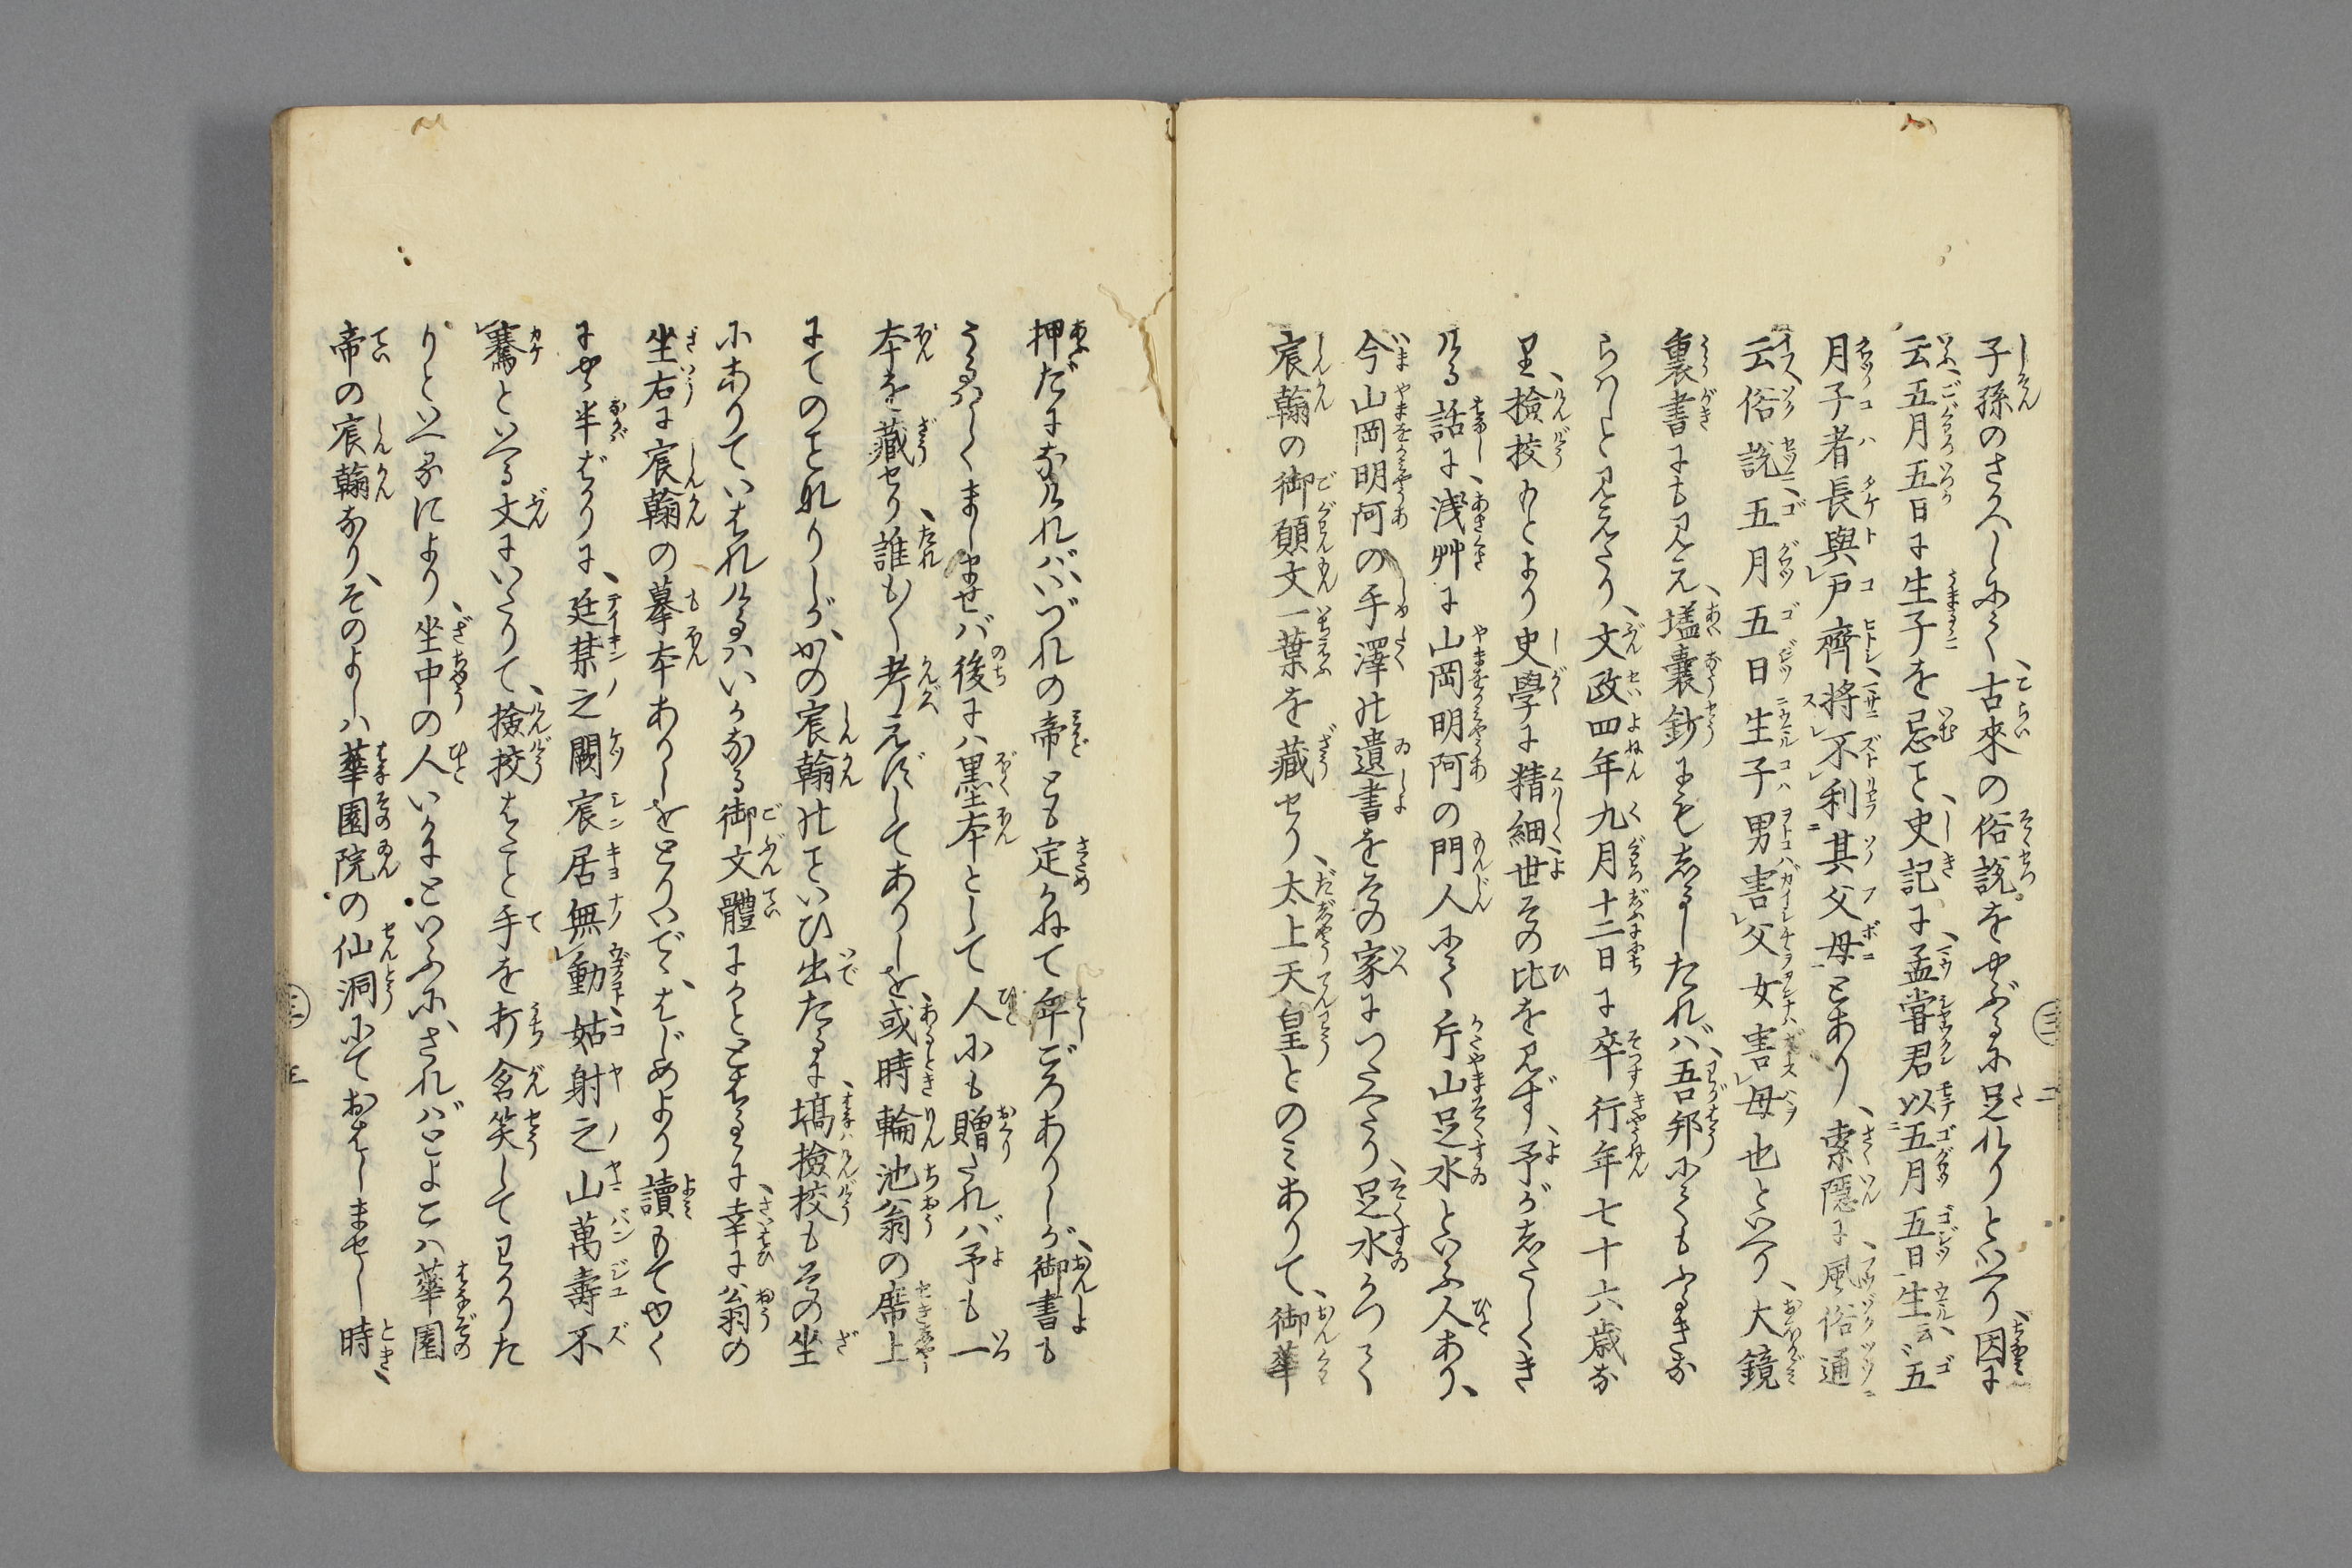 子孫のさかへしにて、古來の俗説をやぶるに足れりといへり、因に
云、五月五日に生子を忌こと、史記に、孟嘗君以五月五日生云云、五
月子者長與戸齊、將不利其父母とあり、索隠に、風俗通
云、俗説、五月五日生子男害父女害母也といへり、大鏡
裏書にも見え、壒嚢鈔にもしるしたれバ、吾邦にてもふるきな
らハしと見えたり、文政四年九月十二日に卒行年七十六歳な
り、撿挍もとより史學に精細、世その比を見ず、予がしたしくき
ける話に、浅艸に山岡明阿の門人にて片山足水といふ人あり、
今山岡明阿の手澤の遺書をその家につたへたり、足水かつて
宸翰の御願文一葉を藏せり、太上天皇とのミありて、御華
押だになけれバ、いづれの帝とも定かねて年ごろありしが、御書も
うるハしくましませバ後にハ墨本として人にも贈たれバ、予も一
本を藏せり、誰も〱考えずしてありしを、或時輪池翁の席上
にてのことなりしが、かの宸翰のこといひ出たるに、塙撿挍もその坐
にありていはれけるハ、いかなる御文體にかととはるるに、幸に翁の
坐右に宸翰の摹本ありしをとりいで、はじめより讀もてゆく
にやゝ半ばかりに、廷禁之闕宸居無動、姑射之山萬壽不
騫といへる文にいたりて、撿挍はたと手を打含笑してわかりた
りといへるにより、坐中の人いかにといふに、さればとよこハ華園
帝の宸翰なり、そのよしハ華園院の仙洞にておはしませし時、
三
二
三
三